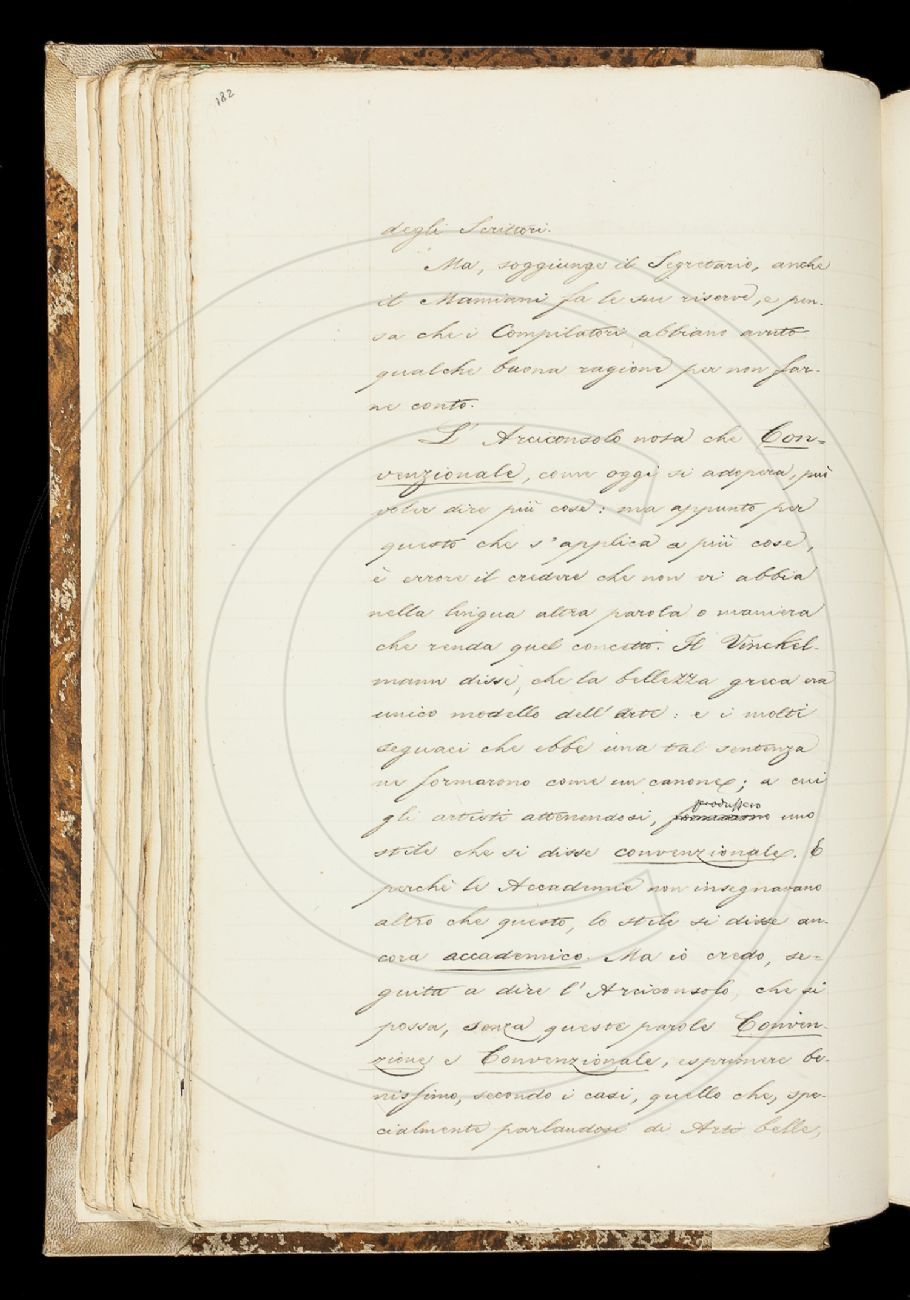 182
degli Scrittori.
Ma, soggiunge il Segretario, anche
il Mamiani fa le sue riserve, e pen-
sa che i Compilatori abbiano avuto
qualche buona ragione per non far-
ne conto.
L'Arciconsolo nota che Con-
venzionale, come oggi si adopera, può
voler dire più cose: ma appunto per
questo che s'applica a più cose,
è errore il credere che non vi abbia
nella lingua altra parola o maniera
che renda quel concetto. Il Vinckel-
mann disse, che la bellezza greca era
unico modello dell'arte: e i molti
seguaci che ebbe una tal sentenza
ne formarono come un canone; a cui
gli artisti attenendosi, formarono produssero uno
stile che si disse convenzionale. E
perchè le Accademie non insegnavano
altro che questo, lo stile si disse an-
cora accademico. Ma io credo, se-
guita a dire l'Arciconsolo, che si
possa, senza queste parole Conven-
zione e Convenzionale, esprimere be-
nissimo, secondo i casi, quello che, spe-
cialmente parlandosi di Arti belle,